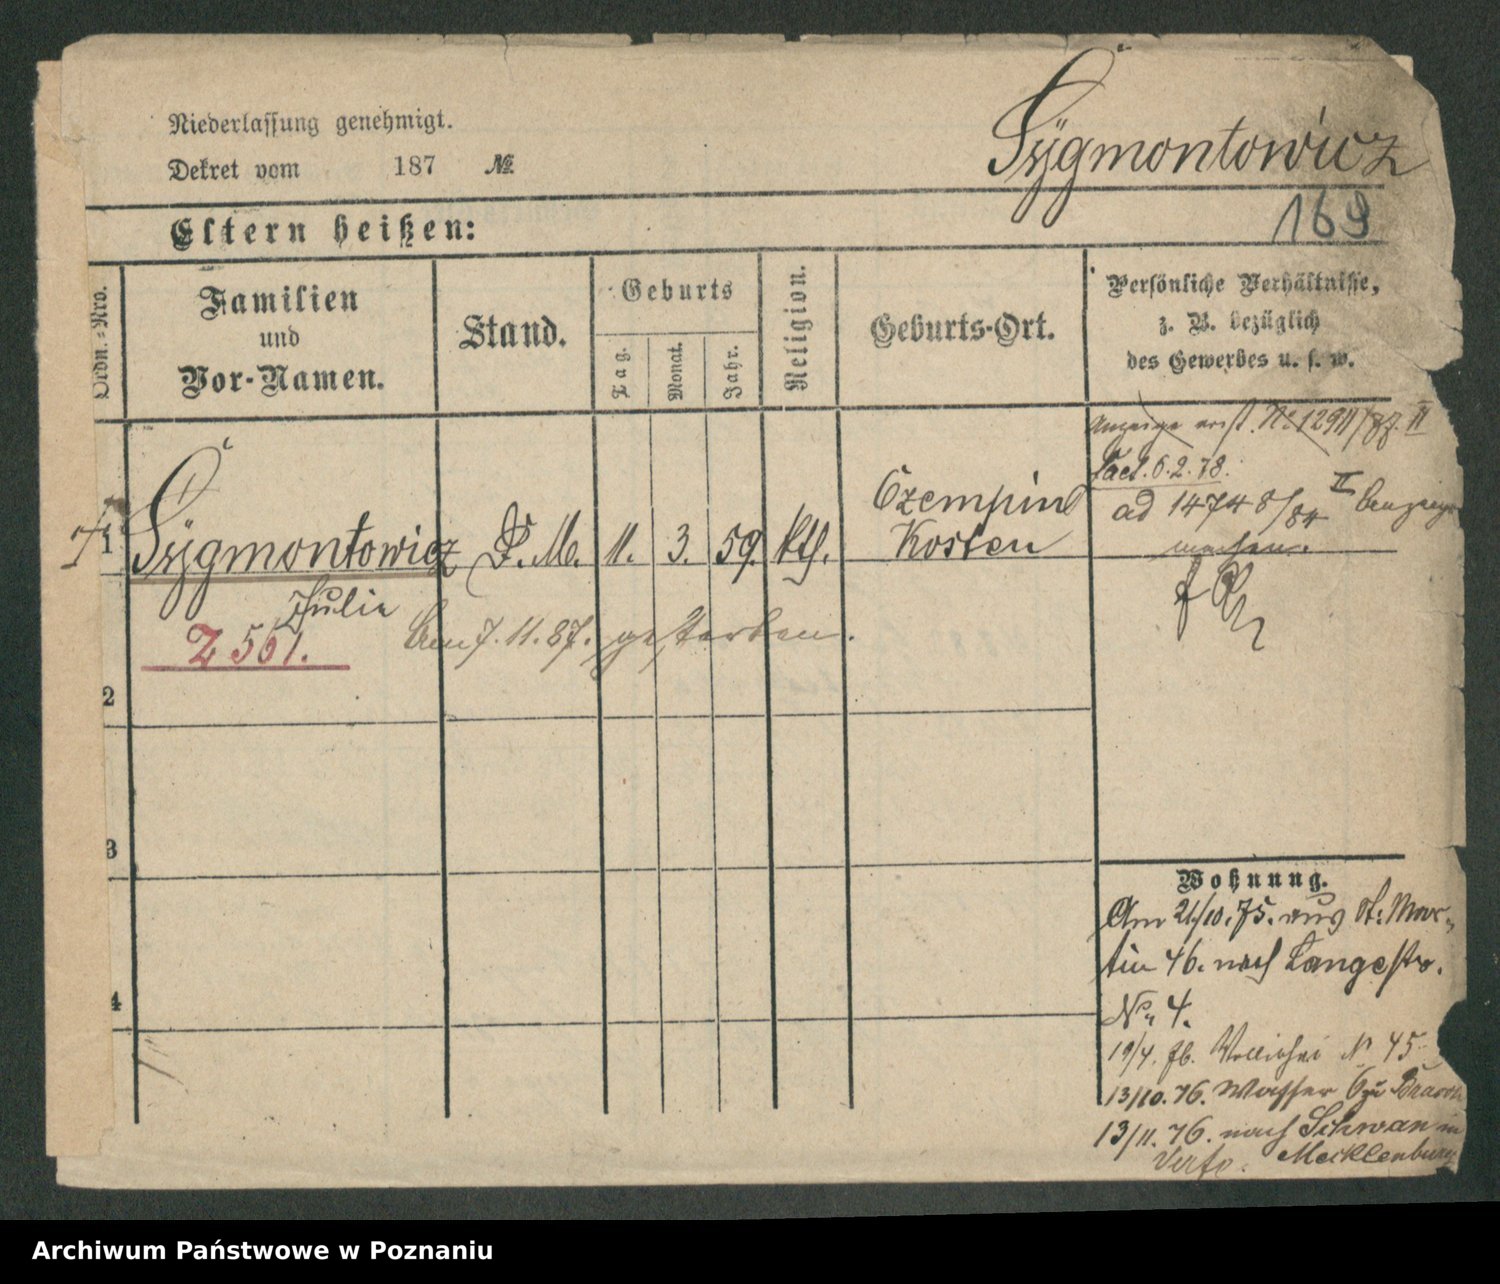 Niederlassung genehmigt.
Dekret vom 187 №
Szygmontowicz
169
Eltern heißen:
Ordn.-Nro.
Familien
und
Vor-Namen.
Stand.
Geburts
Tag.
Monat.
Jahr.
Religion.
Geburts-Ort.
Persönliche Verhältnisse,
z. B. bezüglich
des Gewerbes u. s. w.
Anzeige II
6.2.78.
ad 14748/84 II
machen.
1
Szygmontowicz
Julie
D. M. 11. 3. 59. kth.
Czempin
Kosten
Z 561.
7. 11. 87. gestorben.
2
3
4
Wohnung.
Am 21/10. 75. aus St: Mar-
tin 46. nach Langestr.
No 4.
19/4. № 45
13/10. 76. Wasser 6
13/11. 76. nach Schwan in
Mecklenburg
Archiwum Państwowe w Poznaniu